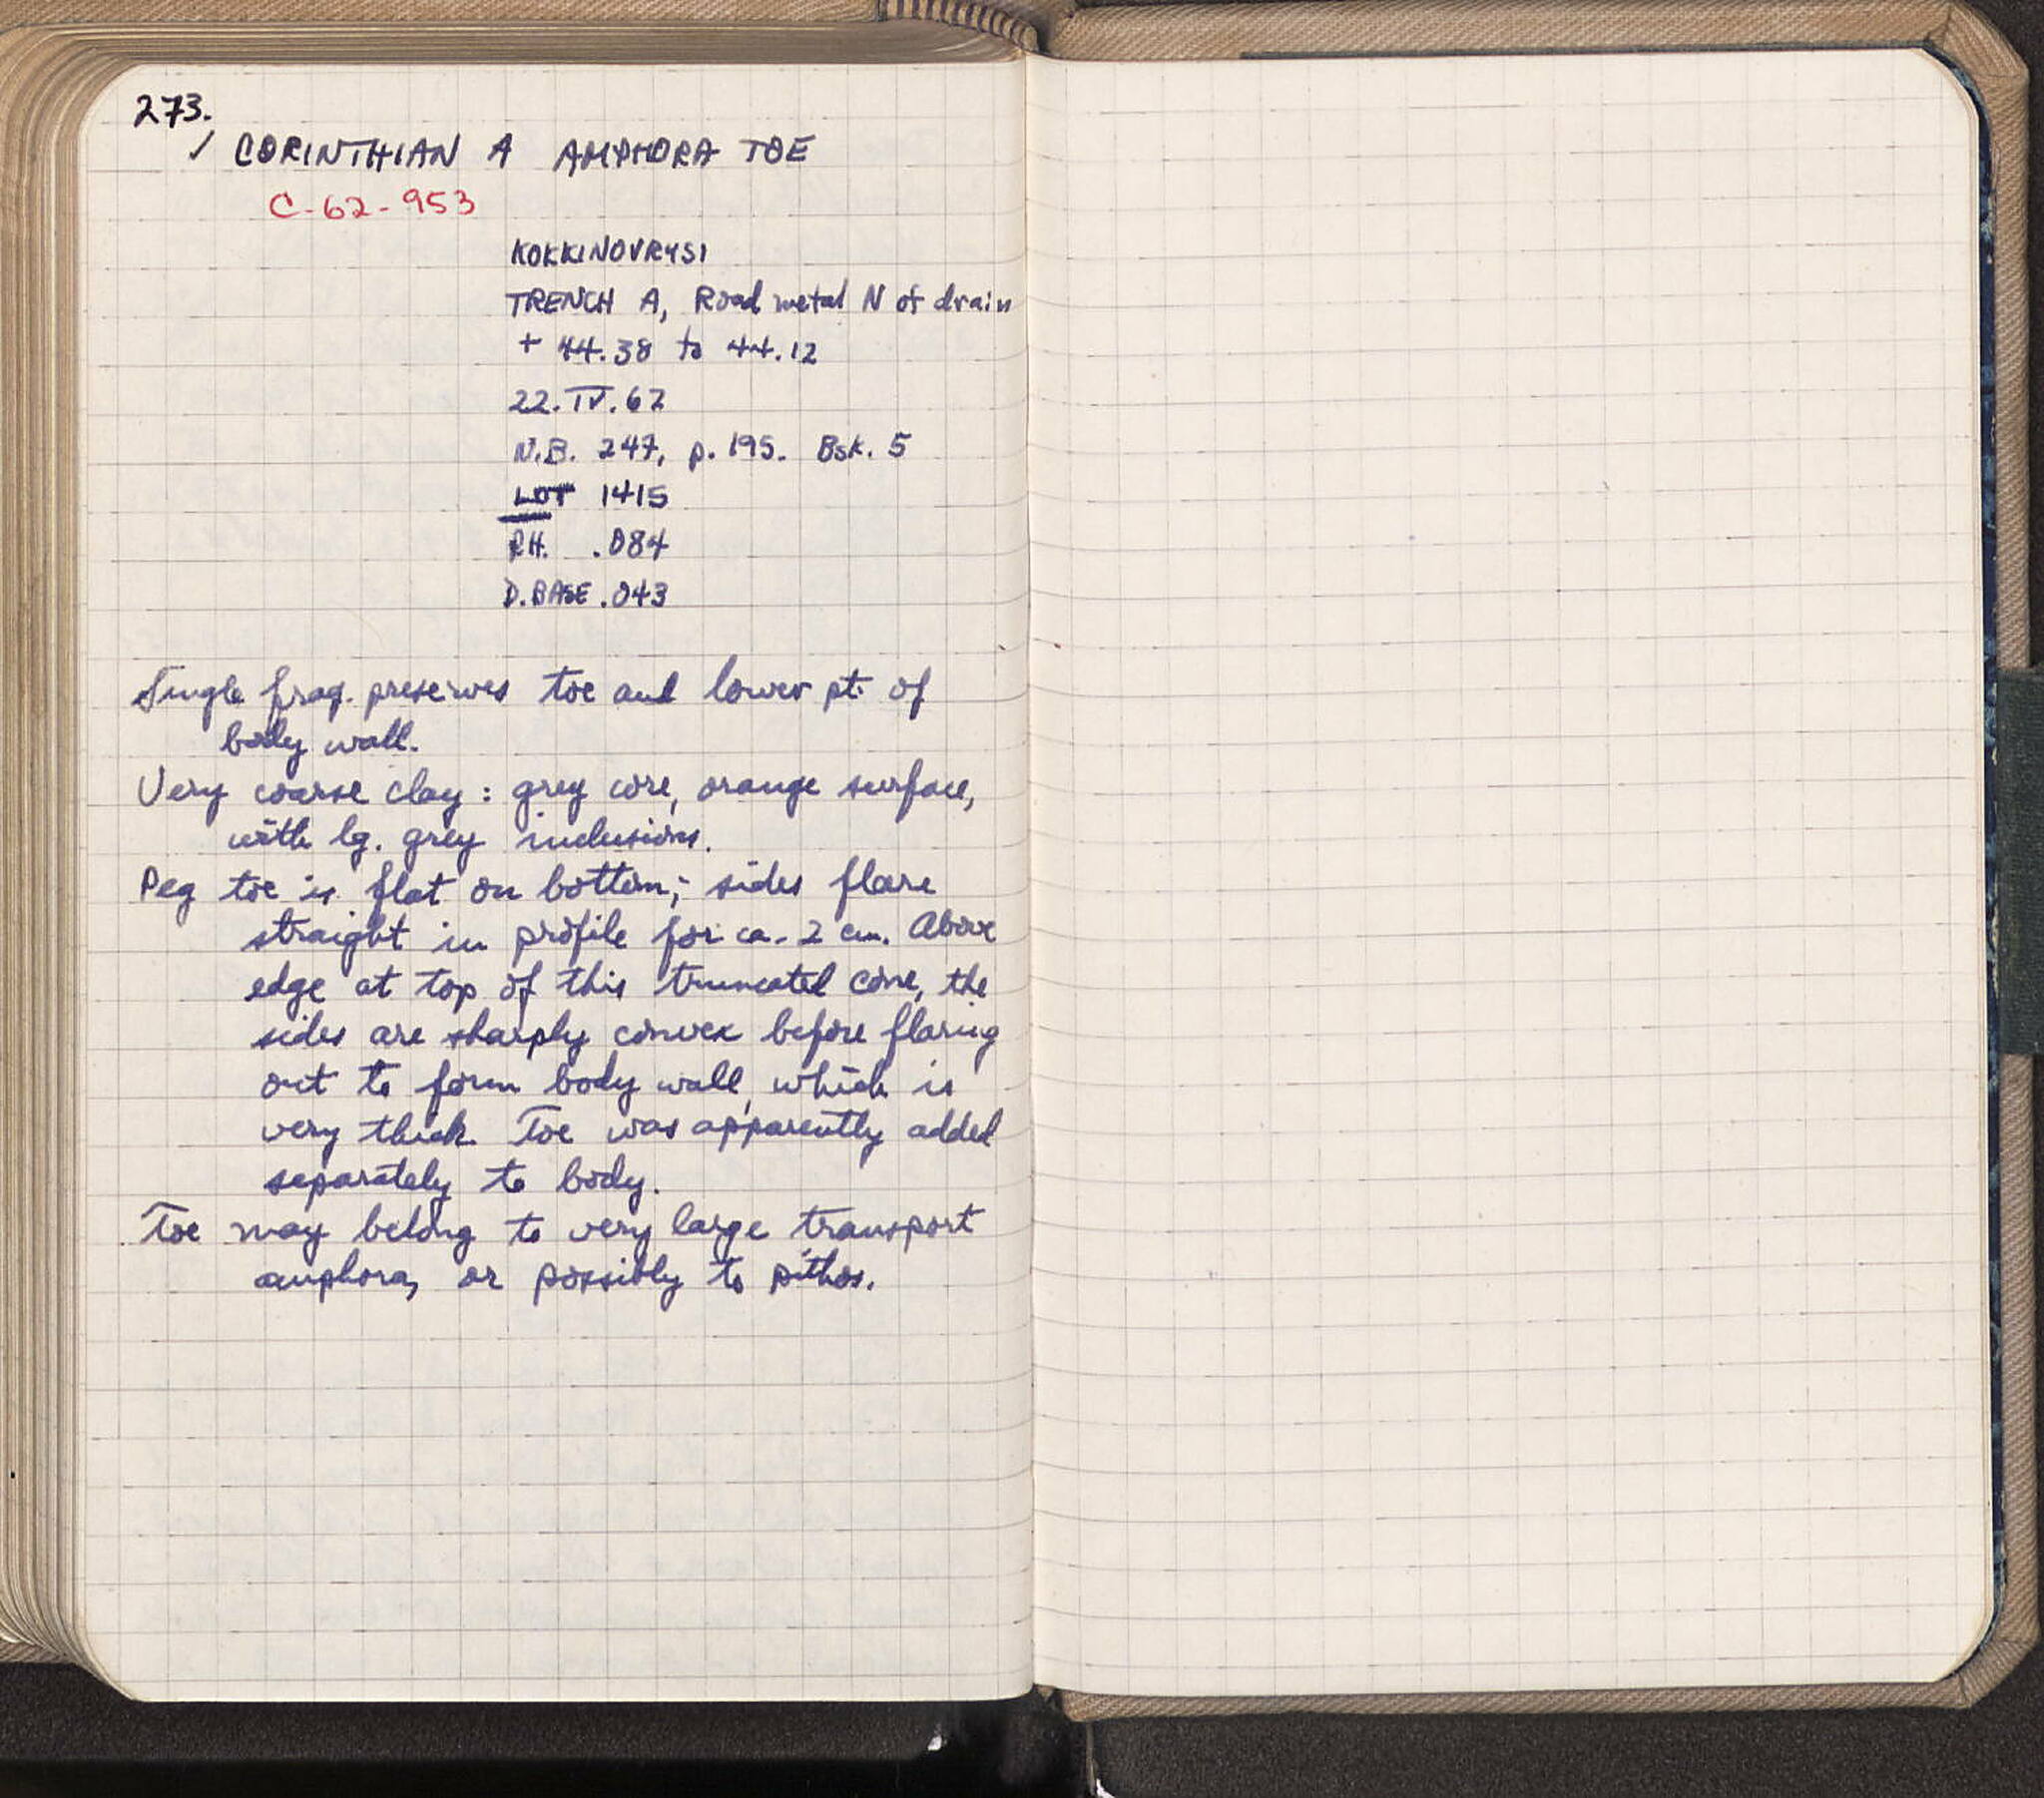 273.
✓ CORINTHIAN A AMPHORA TOE
C-62-953
KOKKINOVRYSI
TRENCH A, Road metal N of drain
+ 44.38 to 44.12
22.IV.62
N.B. 247, p. 195. Bsk. 5
LOT 1415
PH. .084
D.BASE .043
Single frag. preserves toe and lower pt. of
body wall.
Very coarse clay : grey core, orange surface,
with lg. grey inclusions.
Peg toe is flat on bottom; sides flare
straight in profile for ca. 2 cm. Above
edge at top of this truncated cone, the
sides are sharply convex before flaring
out to form body wall, which is
very thick. Toe was apparently added
separately to body.
Toe may belong to very large transport
amphora, or possibly to pithos.